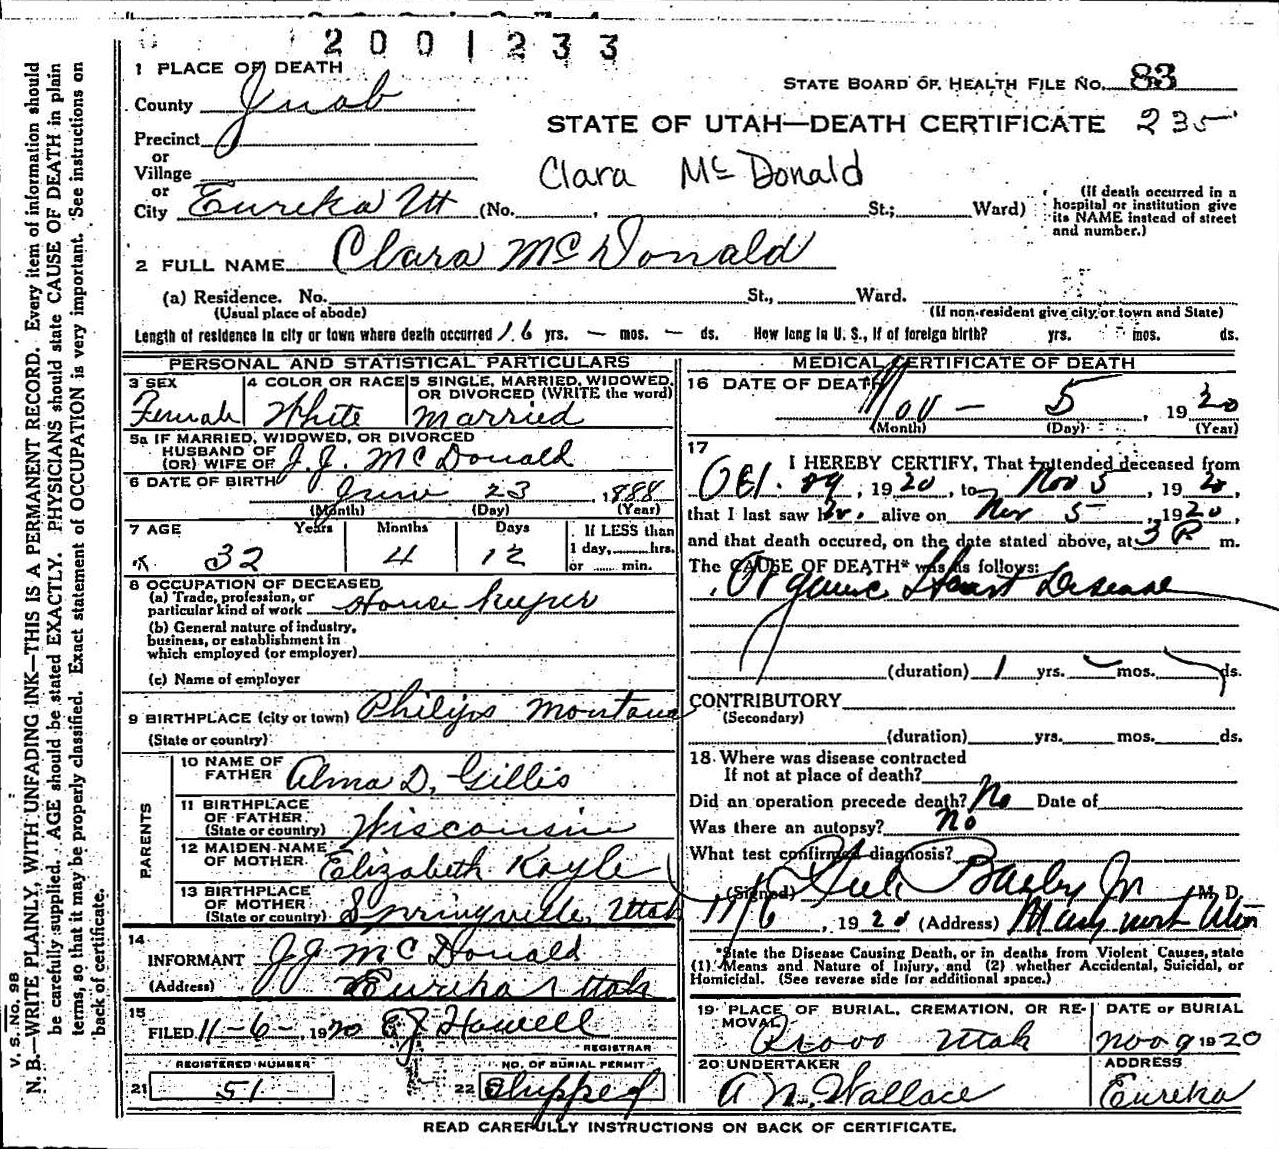 2001233
1 PLACE OF DEATH
STATE BOARD OF HEALTH FILE NO. 83
County Juab
STATE OF UTAH—DEATH CERTIFICATE 235
Precinct
or
Village
Clara McDonald
or
City Eureka Ut (No. , St.; Ward)
(If death occurred in a hospital or institution give its NAME instead of street and number.)
2 FULL NAME Clara McDonald
(a) Residence. No. St., Ward.
(Usual place of abode) (If non-resident give city or town and State)
Length of residence in city or town where death occurred 16 yrs. — mos. — ds. How long in U. S., if of foreign birth? yrs. mos. ds.
PERSONAL AND STATISTICAL PARTICULARS
3 SEX Female
4 COLOR OR RACE White
5 SINGLE, MARRIED, WIDOWED, OR DIVORCED (WRITE the word) Married
5a IF MARRIED, WIDOWED, OR DIVORCED
HUSBAND OF
(OR) WIFE OF J. J. McDonald
6 DATE OF BIRTH June 23, 1888
(Month) (Day) (Year)
7 AGE Years Months Days If LESS than
32 4 12 1 day, hrs.
or min.
8 OCCUPATION OF DECEASED
(a) Trade, profession, or
particular kind of work House keeper
(b) General nature of industry,
business, or establishment in
which employed (or employer)
(c) Name of employer
9 BIRTHPLACE (city or town) Philips Montana
(State or country)
PARENTS
10 NAME OF FATHER Alma D. Gillis
11 BIRTHPLACE OF FATHER (State or country) Wisconsin
12 MAIDEN NAME OF MOTHER Elizabeth Kayle
13 BIRTHPLACE OF MOTHER (State or country) Springville, Utah
14
INFORMANT J J McDonald
(Address) Eureka Utah
15
FILED 11-6-1920 E J Howell
REGISTRAR
REGISTERED NUMBER NO. OF BURIAL PERMIT
21 51 22 Shipped
MEDICAL CERTIFICATE OF DEATH
16 DATE OF DEATH
Nov — 5, 1920
(Month) (Day) (Year)
17
I HEREBY CERTIFY, That I attended deceased from
Oct. 29, 1920, to Nov 5, 1920,
that I last saw her alive on Nov 5, 1920,
and that death occured, on the date stated above, at 3 P m.
The CAUSE OF DEATH* was as follows:
Organic Heart Disease
(duration) 1 yrs. mos. ds.
CONTRIBUTORY
(Secondary)
(duration) yrs. mos. ds.
18 Where was disease contracted
If not at place of death?
Did an operation precede death? No Date of
Was there an autopsy? No
What test confirmed diagnosis?
(Signed) Steele Bailey Jr M. D.
11/6, 1920 (Address)
*State the Disease Causing Death, or in deaths from Violent Causes, state
(1) Means and Nature of Injury, and (2) whether Accidental, Suicidal, or
Homicidal. (See reverse side for additional space.)
19 PLACE OF BURIAL, CREMATION, OR REMOVAL DATE OF BURIAL
Provo Utah Nov 9 1920
20 UNDERTAKER ADDRESS
A N. Wallace Eureka
READ CAREFULLY INSTRUCTIONS ON BACK OF CERTIFICATE.
V. S. No. 98
N. B.—WRITE PLAINLY, WITH UNFADING INK—THIS IS A PERMANENT RECORD. Every item of information should
be carefully supplied. AGE should be stated EXACTLY. PHYSICIANS should state CAUSE OF DEATH in plain
terms, so that it may be properly classified. Exact statement of OCCUPATION is very important. See instructions on
back of certificate.